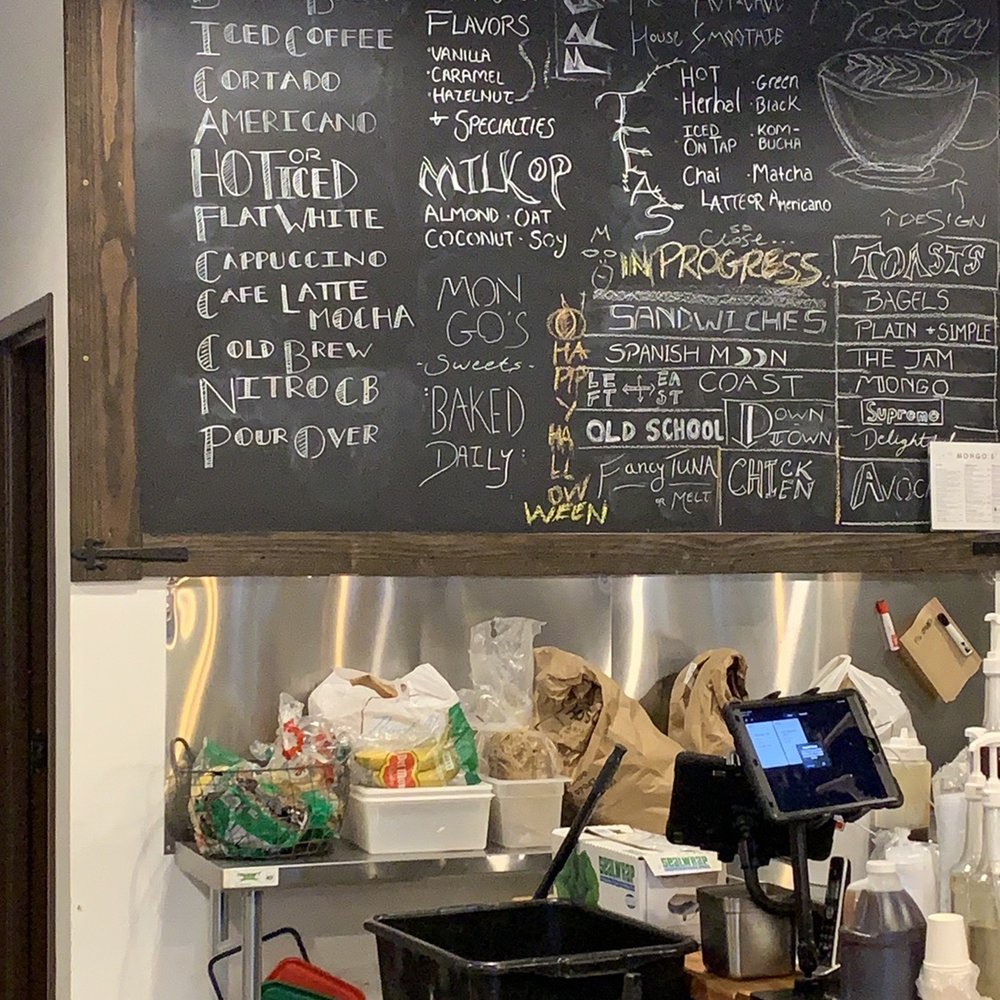 ICED COFFEE
CORTADO
AMERICANO
HOT OR ICED
FLAT WHITE
CAPPUCCINO
CAFE LATTE
MOCHA
COLD BREW
NITRO CB
POUR OVER
FLAVORS
·VANILLA
·CARAMEL
·HAZELNUT
+ SPECIALTIES
MILK OP
ALMOND · OAT
COCONUT · SOY
MON
GO'S
-Sweets-
BAKED
DAILY
HAPPY HALLOWEEN
HOUSE SMOOTHIE
TEAS
HOT · Green
Herbal · Black
ICED ON TAP · KOM-BUCHA
Chai · Matcha
LATTE OR Americano
ROASTERY
↑DESIGN
so close...
IN PROGRESS.
SANDWICHES
SPANISH MOON
LEFT EAST COAST
OLD SCHOOL
DOWN TOWN
Fancy TUNA
OR MELT
CHICKEN
TOASTS
BAGELS
PLAIN + SIMPLE
THE JAM
MONGO
Supreme
Delight
AVOC
MONGO'S
Del Monte
SEALWRAP
SEALWRAP